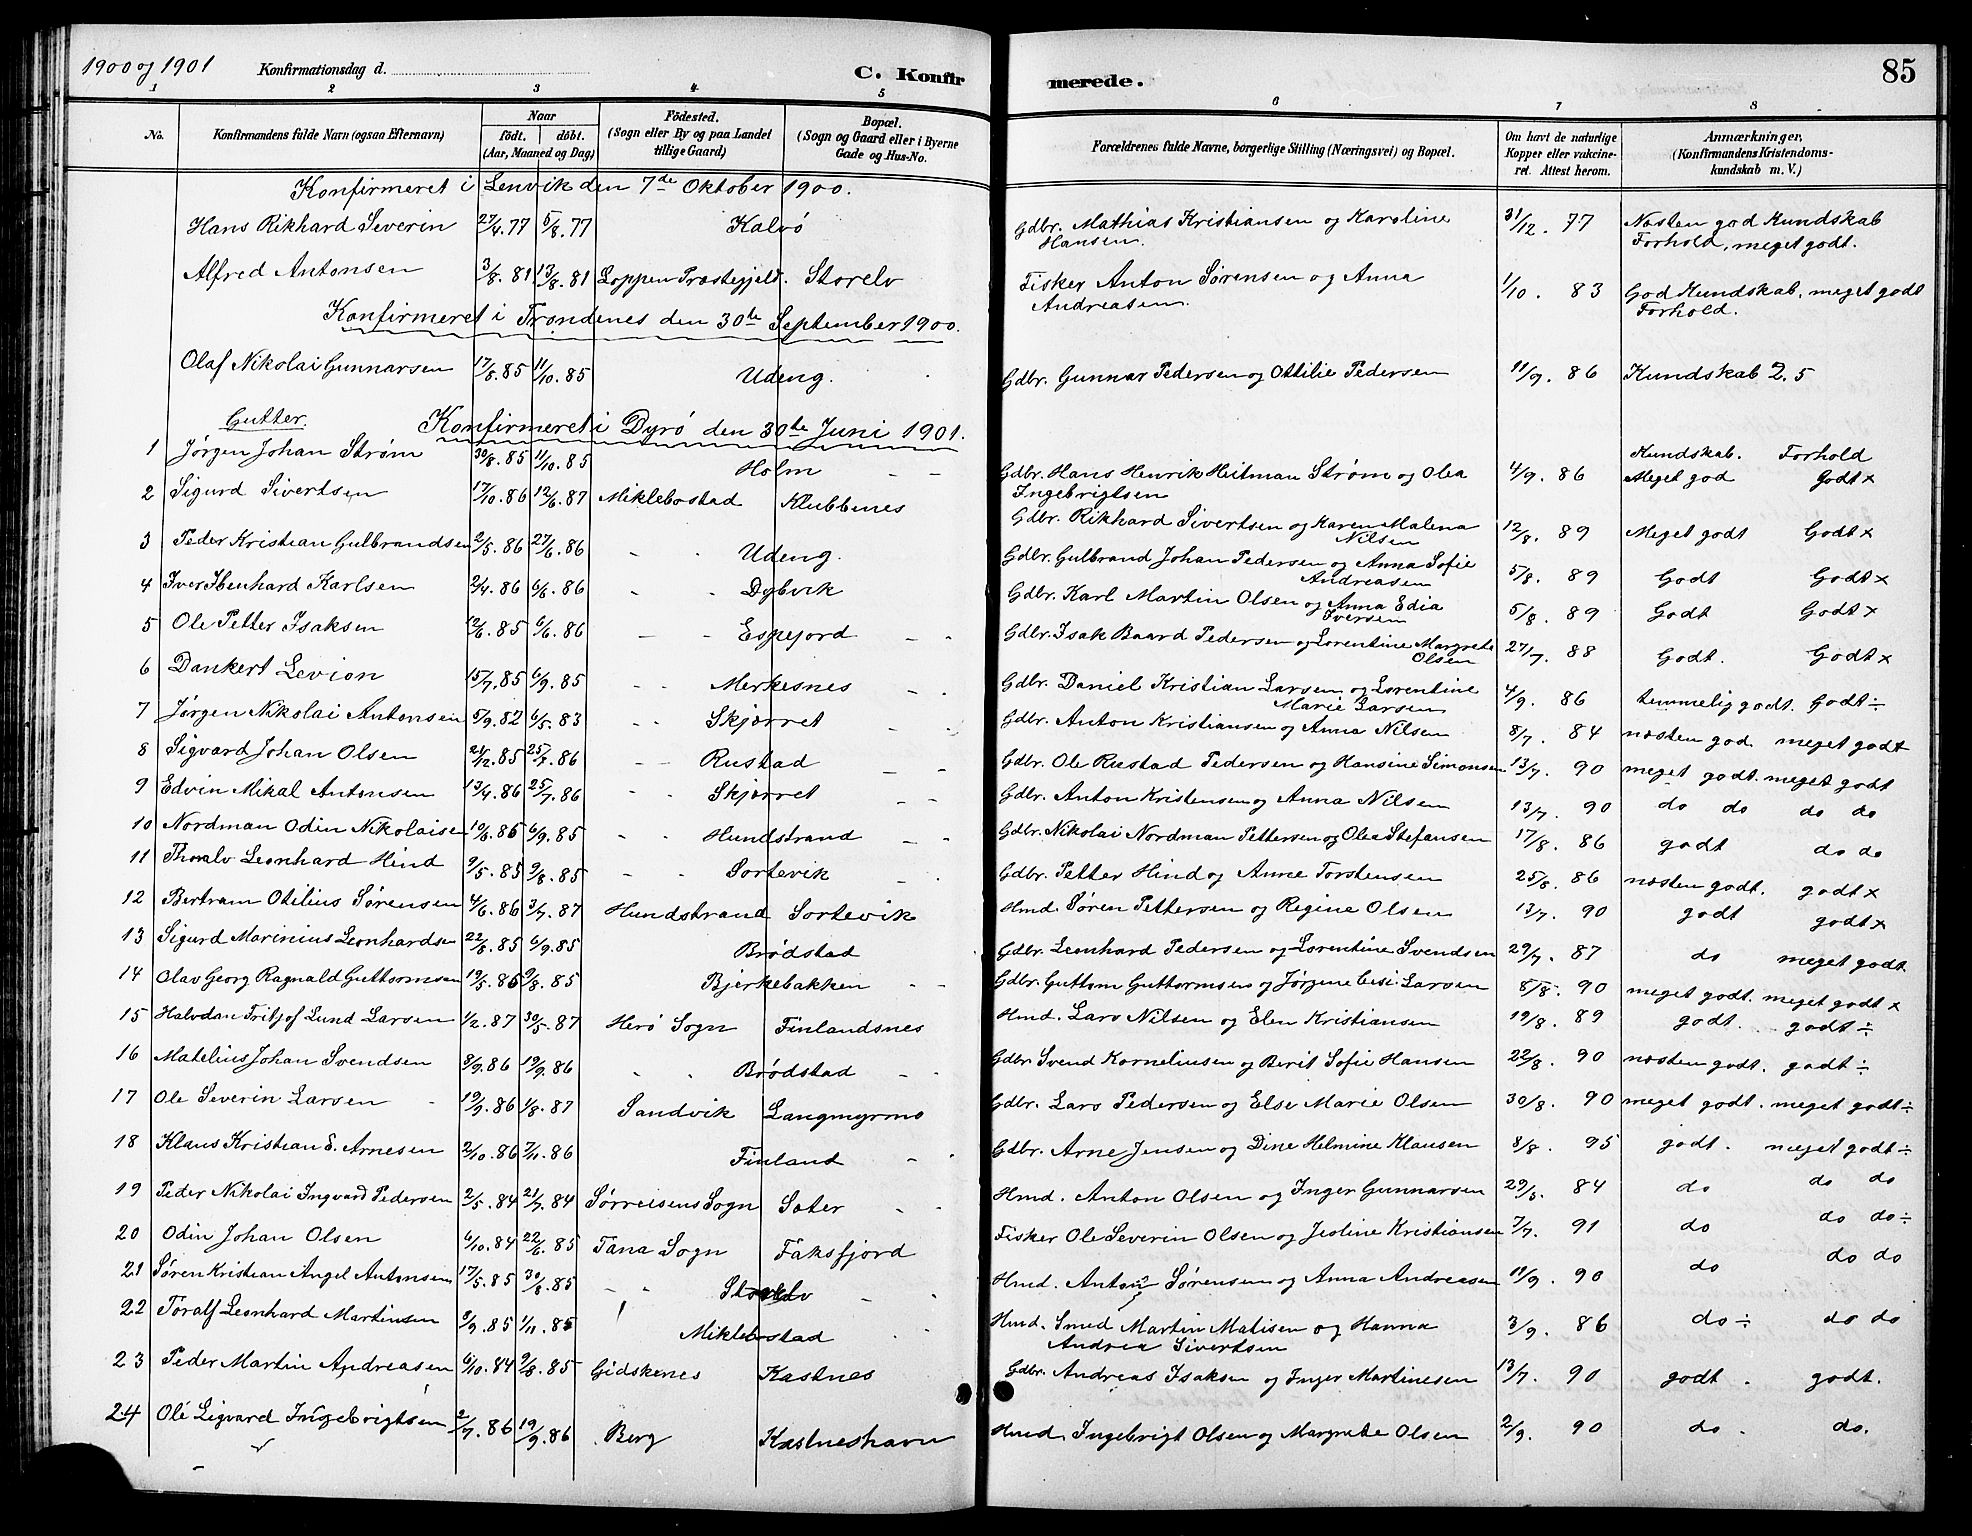 1900 og 1901 Konfirmationsdag d. C. Konfirmerede. 85
1 2 3 4 5 6 7 8
No. Konfirmandens fulde Navn (ogsaa Efternavn) Naar födt. döbt. (Aar, Maaned og Dag) Födested. (Sogn eller By og paa Landet tillige Gaard) Bopæl. (Sogn og Gaard eller i Byerne Gade og Hus-No. Forældrenes fulde Navne, borgerlige Stilling (Næringsvei) og Bopæl. Om havt de naturlige Kopper eller vakcineret. Attest herom. Anmærkninger, (Konfirmandens Kristendomskundskab m. V.)
Konfirmeret i Lenvik den 7de Oktober 1900.
Hans Rikhard Severin 27/4.77 5/8.77 Kalvö Gdbr. Mathias Kristiansen og Karoline Hansen. 31/12. 77 Næsten god Kundskab Forhold, meget godt.
Alfred Antonsen 3/8.81 13/8.81 Loppen Præstegjeld. Storelv Fisker Anton Sørensen og Anna Andreasen. 1/10. 83 God Kundskab, meget godt Forhold.
Konfirmeret i Trondenes den 30te September 1900.
Olaf Nikolai Gunnarsen 17/8.85 11/10.85 Udeng. Gdbr. Gunnar Pedersen og Ottilie Pedersen 11/9. 86 Kundskab 2.5
Gutter. Konfirmeret i Dyrö den 30te Juni 1901.
Kundskab. Forhold
1 Jørgen Johan Strøm 30/8.85 11/10.85 Holm Gdbr. Hans Henrik Heitman Strøm og Olea Ingebrigtsen 4/9. 86 Meget god Godt x
2 Sigurd Sivertsen 17/10.86 12/6.87 Miklebostad Klubbenes Gdbr. Rikhard Sivertsen og Karen Malena Nilsen 12/8. 89 Meget godt Godt x
3 Peder Kristian Gulbrandsen 2/5.86 27/6.86 Udeng. Gdbr. Gulbrand Johan Pedersen og Anna Sofie Andreasen 5/8. 89 Godt Godt x
4 Iver Ibenhard Karlsen 2/4.86 6/6.86 Dybvik Gdbr. Karl Martin Olsen og Anna Edia Iversen 5/8. 89 Godt Godt x
5 Ole Petter Isaksen 12/6.85 6/6.86 Espejord Gdbr. Isak Baard Pedersen og Lorentine Margrete Olsen 27/7. 88 Godt. Godt x
6 Dankert Levion 15/7.85 6/9.85 Merkesnes Gdbr. Daniel Kristian Larsen og Lorentine Marie Larsen 4/9. 86 temmelig godt. Godt ÷
7 Jørgen Nikolai Antonsen 5/9.82 6/5.83 Skjærret Gdbr. Anton Kristiansen og Anna Nilsen 8/7. 84 næsten god. meget godt
8 Sigvard Johan Olsen 24/12.85 25/7.86 Rustad Gdbr. Ole Rustad Pedersen og Hansine Simonsen 13/7. 90 meget godt. meget godt
9 Edvin Mikal Antonsen 13/4.86 25/7.86 Skjærret Gdbr. Anton Kristensen og Anna Nilsen 13/7. 90 do do do do
10 Nordman Odin Nikolaisen 19/6.85 6/9.85 Hundstrand Gdbr. Nikolai Nordman Pettersen og Olea Stefansen 17/8. 86 godt do do
11 Thoralv Leonhard Hind 9/5.85 9/8.85 Sortevik Gdbr. Petter Hind og Anne Torstensen 25/8. 86 næsten godt. godt x
12 Bertram Otilius Sørensen 4/6.86 3/7.87 Hundstrand Sortevik Hmd. Søren Pettersen og Regine Olsen 13/7. 90 godt godt x
13 Sigurd Marinius Leonhardsen 22/8.85 6/9.85 Brödstad Gdbr. Leonhard Pedersen og Lorentine Svendsen 29/7. 87 do meget godt
14 Olav Georg Ragnald Guttormsen 19/5.85 9/8.85 Bjerkebakken Gdbr. Guttom Guttormsen og Jørgene Larsen 8/8. 90 meget godt. meget godt x
15 Halvdan Fritjof Lund Larsen 1/2.87 30/5.87 Herö Sogn Finlandsnes Hmd. Lars Nilsen og Elen Kristiansen 19/8. 89 godt. godt ÷
16 Matelius Johan Svendsen 8/9.86 19/9.86 Brödstad Gdbr Svend Korneliusen og Berit Sofie Hansen 22/8. 90 næsten godt. godt ÷
17 Ole Severin Larsen 19/9.86 1/8.87 Sandvik Langmyrmo Gdbr. Lars Pedersen og Else Marie Olsen 30/8. 90 meget godt. meget godt ÷
18 Klaus Kristian E. Arnesen 2/10.86 7/11.86 Finland Gdbr. Arne Jensen og Dine Helmine Klausen 8/8. 95 godt. meget godt ÷
19 Peder Nikolai Ingvard Pedersen 2/5.84 21/7.84 Sørreisens Sogn Sæter Hmd. Anton Olsen og Inger Gunnarsen 29/8. 84 do do do
20 Odin Johan Olsen 6/10.84 22/6.85 Tana Sogn Faksfjord Fisker Ole Severin Olsen og Jestine Kristiansen 7/7. 91 do do do ÷
21 Søren Kristian Angel Antonsen 17/5.85 30/8.85 Storelv Hmd. Anton Sørensen og Anna Andreasen 19/9. 90 do do do
22 Toralf Leonhard Martinsen 8/9.85 1/11.85 Miklebostad Hmd. Smed Martin Matisen og Hanna Andrea Sivertsen 3/9. 86 do ÷ do do
23 Peder Martin Andreasen 6/10.84 9/8.85 Gidskenes Kastnes Gdbr. Andreas Isaksen og Inger Martinesen 13/7. 90 godt. godt.
24 Ole Sigvard Ingebrigtsen 2/7.86 19/9.86 Berg Kastneshavn Hmd. Ingebrigt Olsen og Margrete Olsen 2/9. 90 do. do.